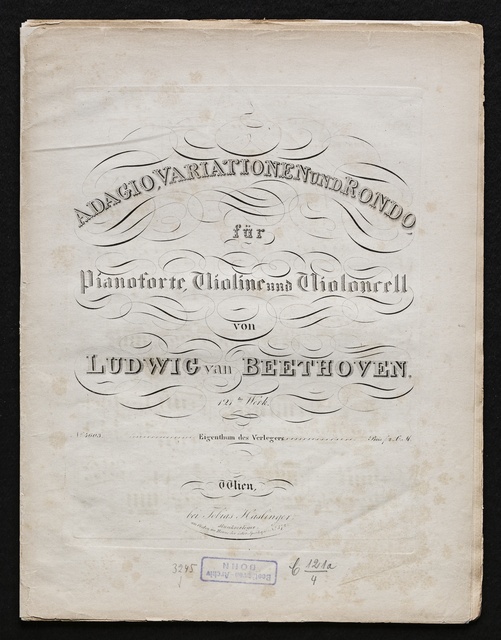 ADAGIO, VARIATIONEN UND RONDO,
für
Pianoforte, Violine und Violoncell
von
LUDWIG van BEETHOVEN.
121tes Werk.
Eigenthum des Verlegers
Wien,
bei Tobias Haslinger,
3245
Beethoven Archiv
BONN
C 121a
4